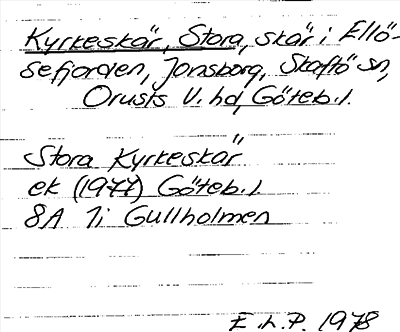 Kyrkeskär, Stora, skär i Ellö-
sefjorden, Jonsborg, Skaftö sn,
Orusts V. hd, Göteb. l.
Stora Kyrkeskär
ek (1977) Göteb. l.
8A 7i Gullholmen
E.h.P. 1978